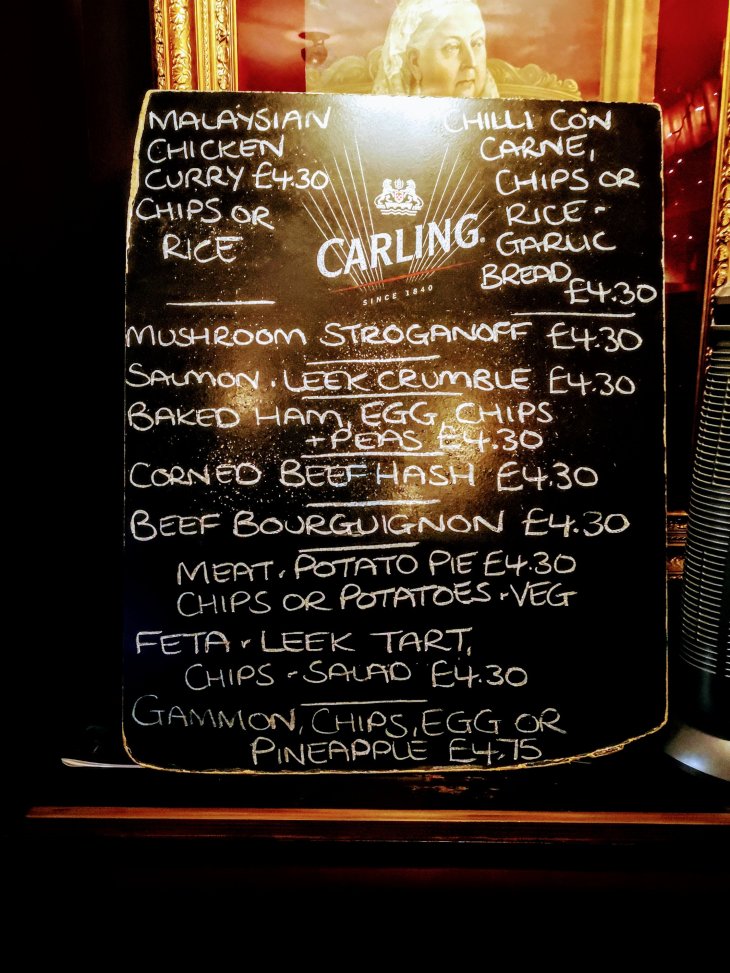 MALAYSIAN
CHICKEN
CURRY £4.30
CHIPS OR
RICE
CHILLI CON
CARNE,
CHIPS OR
RICE -
GARLIC
BREAD
£4.30
CARLING
SINCE 1840
MUSHROOM STROGANOFF £4.30
SALMON . LEEK CRUMBLE £4.30
BAKED HAM, EGG CHIPS
+ PEAS £4.30
CORNED BEEF HASH £4.30
BEEF BOURGUIGNON £4.30
MEAT . POTATO PIE £4.30
CHIPS OR POTATOES - VEG
FETA - LEEK TART,
CHIPS - SALAD £4.30
GAMMON, CHIPS, EGG OR
PINEAPPLE £4.75